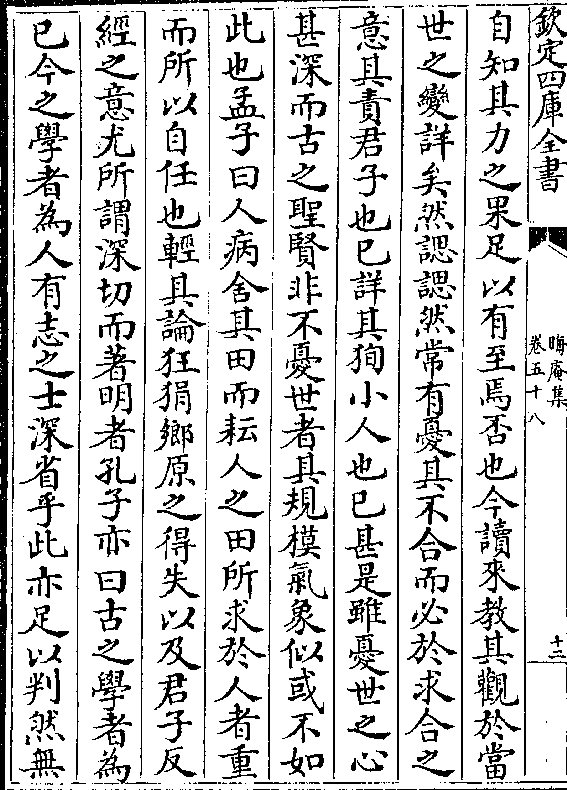 欽定四庫全書
晦庵集
卷五十八
十三
自知其力之果足以有至焉否也今讀來教其觀於當
世之變詳矣然諰諰然常有憂其不合而必於求合之
意其責君子也已詳其徇小人也已甚是雖憂世之心
甚深而古之聖賢非不憂世者其規模氣象似或不如
此也孟子曰人病舍其田而耘人之田所求於人者重
而所以自任也輕其論狂狷鄉原之得失以及君子反
經之意尤所謂深切而著明者孔子亦曰古之學者為
已今之學者為人有志之士深省乎此亦足以判然無